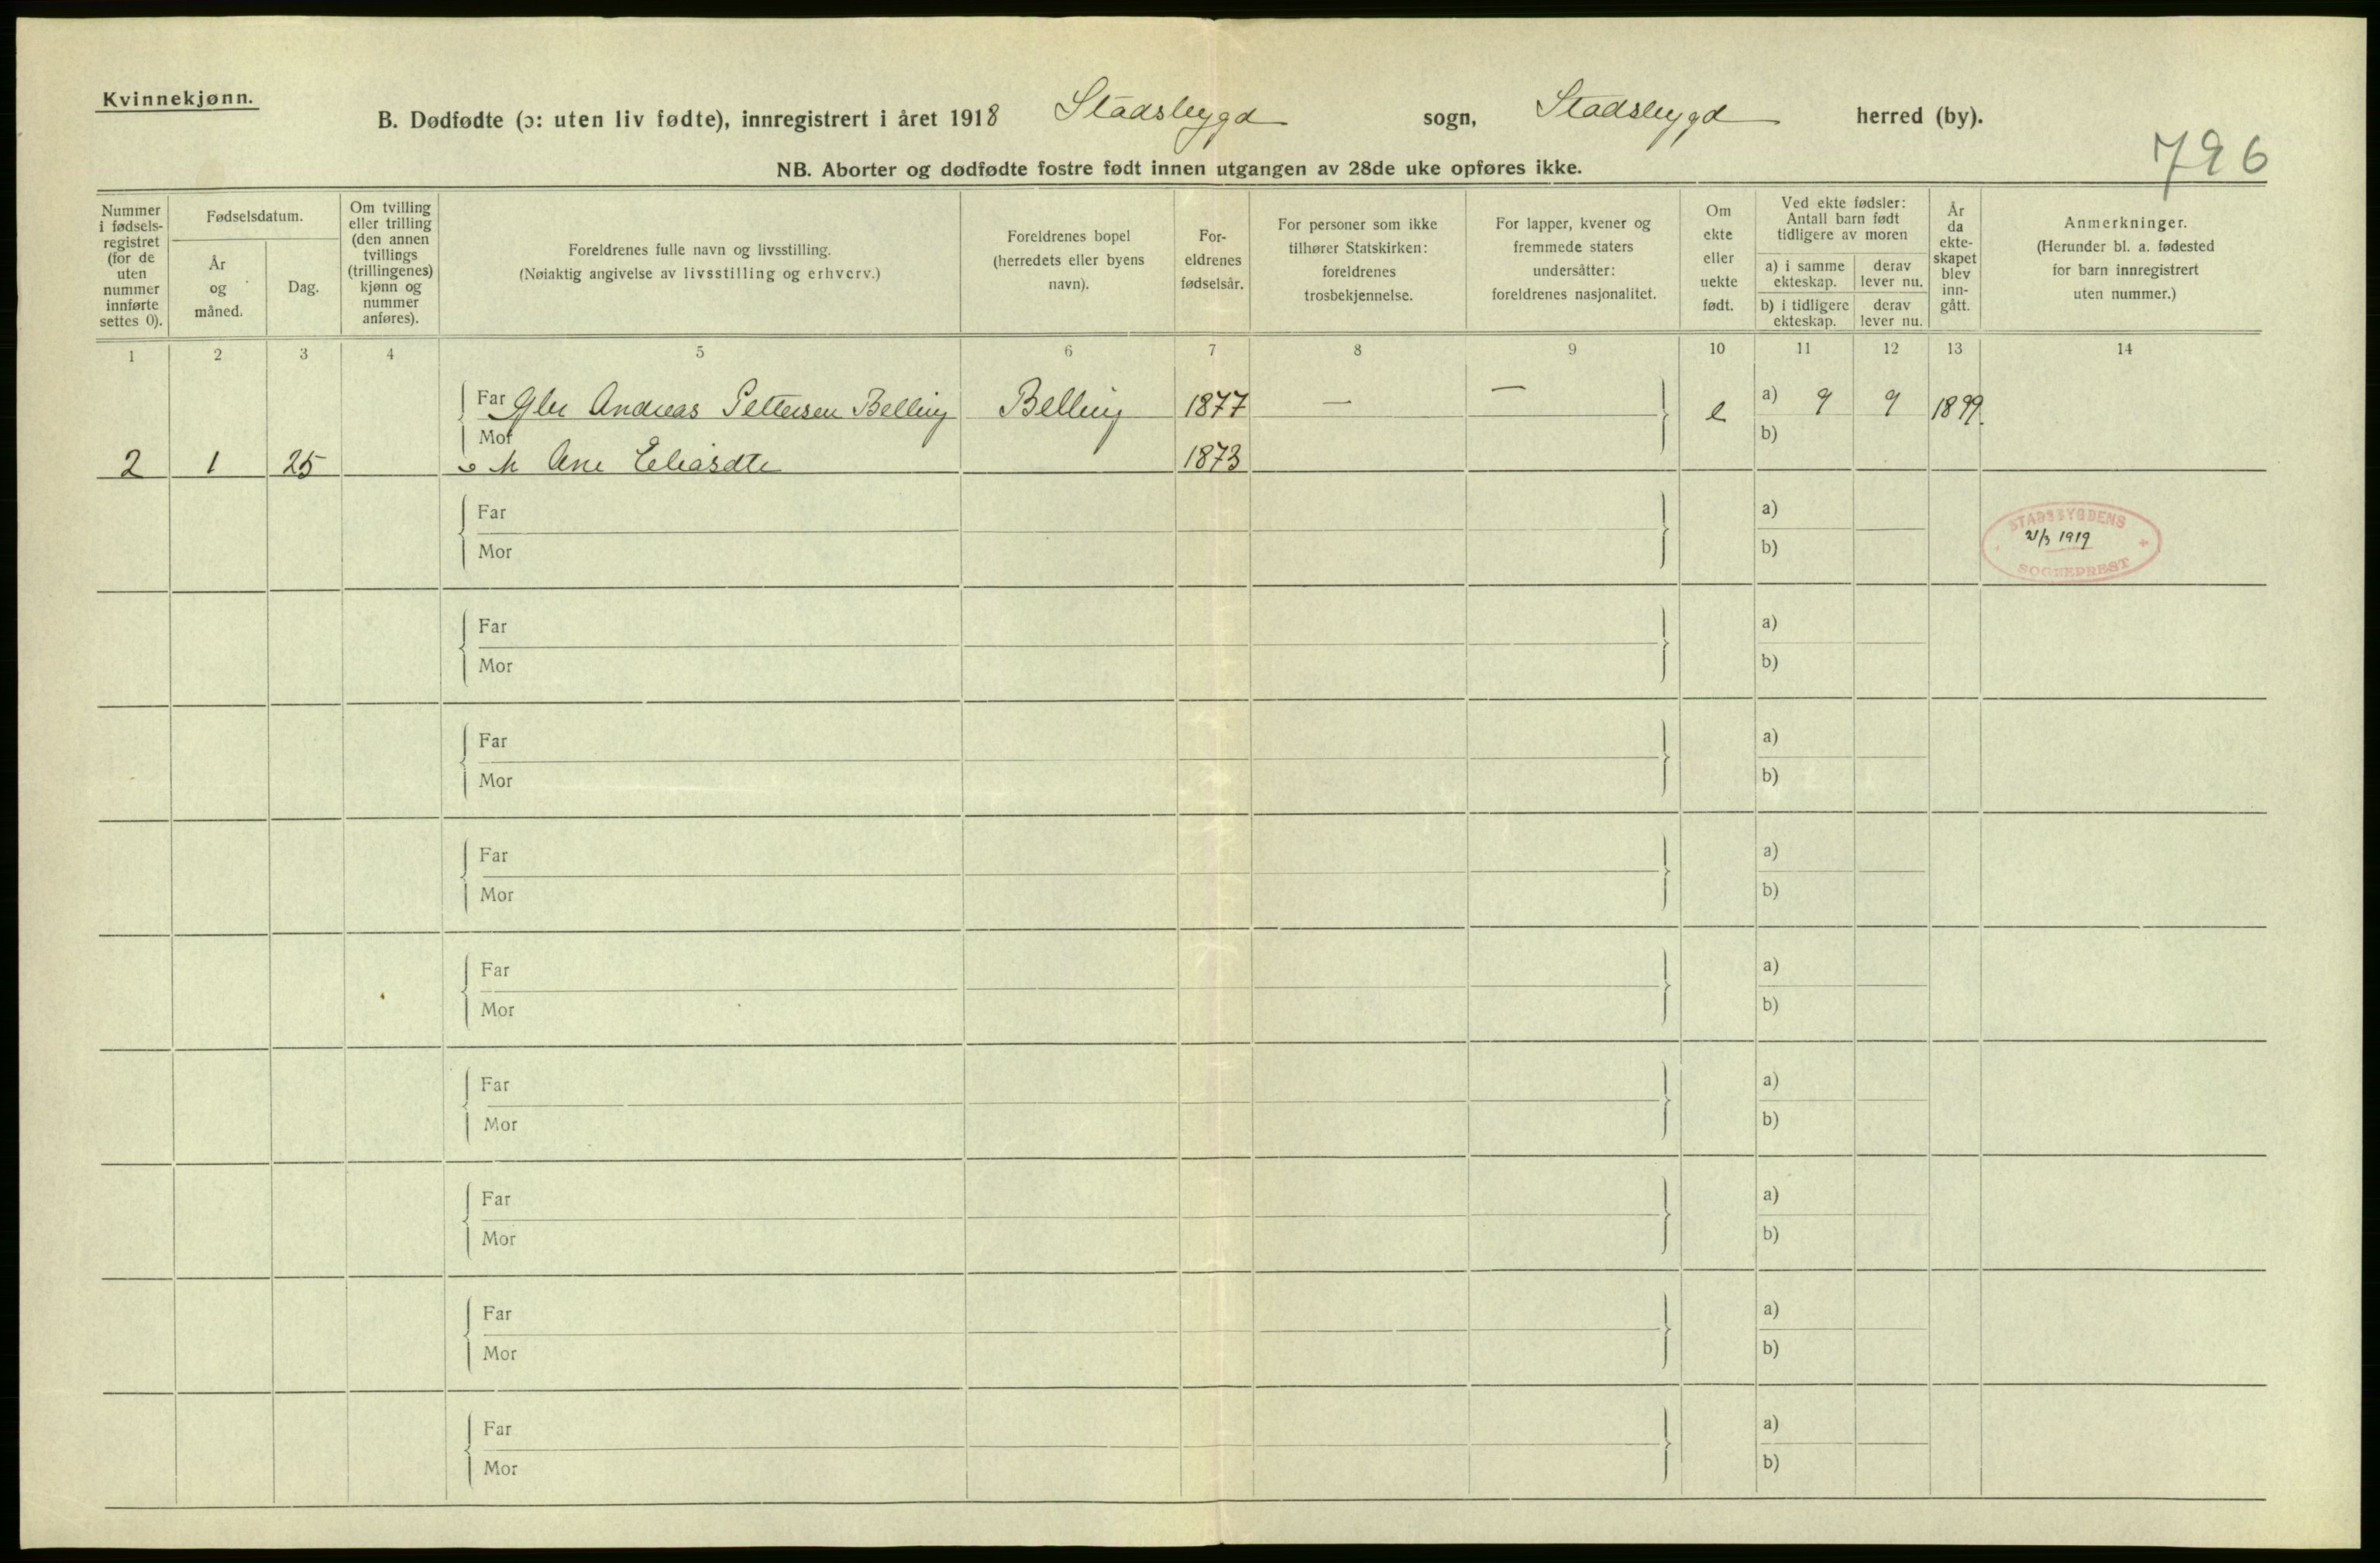 Kvinnekjønn.
B. Dødfødte (ɔ: uten liv fødte), innregistrert i året 1918 Stadsbygd sogn, Stadsbygd herred (by).
796
NB. Aborter og dødfødte fostre født innen utgangen av 28de uke opføres ikke.
Nummer
i fødsels-
registret
(for de
uten
nummer
innførte
settes 0).
Fødselsdatum.
År
og
måned.
Dag.
Om tvilling
eller trilling
(den annen
tvillings
(trillingenes)
kjønn og
nummer
anføres).
Foreldrenes fulle navn og livsstilling.
(Nøiaktig angivelse av livsstilling og erhverv.)
Foreldrenes bopel
(herredets eller byens
navn).
For-
eldrenes
fødselsår.
For personer som ikke
tilhører Statskirken:
foreldrenes
trosbekjennelse.
For lapper, kvener og
fremmede staters
undersåtter:
foreldrenes nasjonalitet.
Om
ekte
eller
uekte
født.
Ved ekte fødsler:
Antall barn født
tidligere av moren
a) i samme
ekteskap.
derav
lever nu.
b) i tidligere
ekteskap.
derav
lever nu.
År
da
ekte-
skapet
blev
inn-
gått.
Anmerkninger.
(Herunder bl. a. fødested
for barn innregistrert
uten nummer.)
1 2 3 4 5 6 7 8 9 10 11 12 13 14
Far Gbr Andreas Pettersen Belling Belling 1877 — — e a) 9 9 1899.
Mor b)
2 1 25 o h Ane Eliasdtr 1873
Far a)
Mor b)
STADSBYGDENS
21/3 1919
SOGNEPREST
Far a)
Mor b)
Far a)
Mor b)
Far a)
Mor b)
Far a)
Mor b)
Far a)
Mor b)
Far a)
Mor b)
Far a)
Mor b)
Far a)
Mor b)